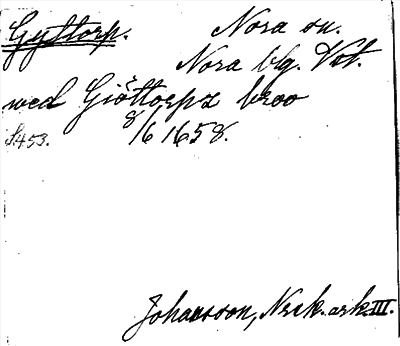 Gyttorp. Nora sn.
Nora blg. Vstm.
wed Giöttorpz broo
S.453. 8/6 1658.
Johansson, Nrk. ark. III.